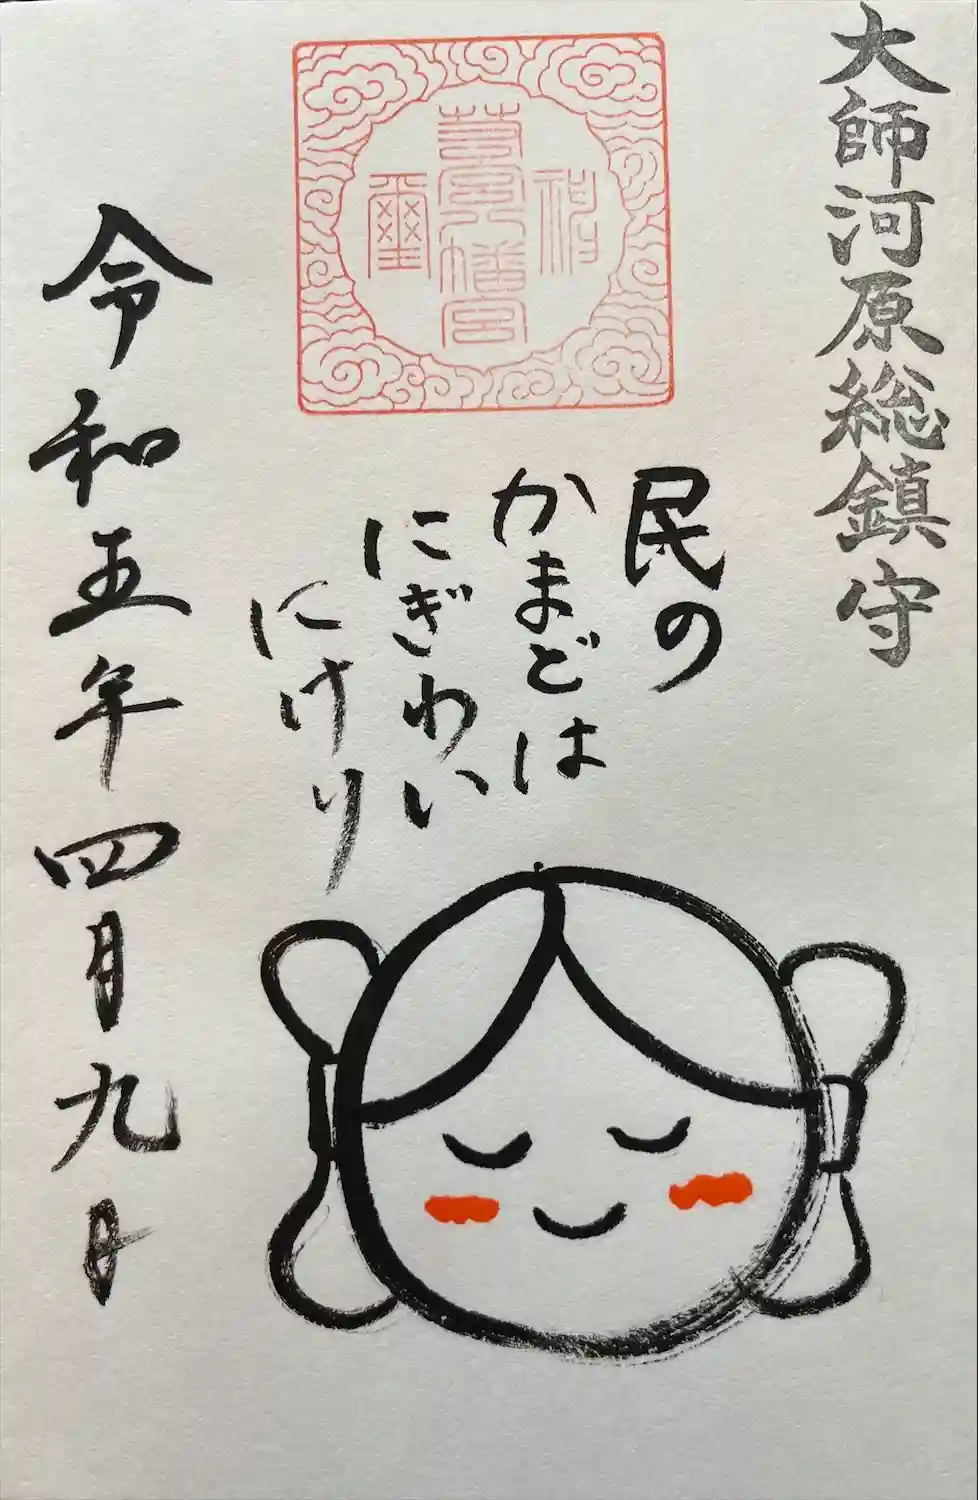 大師河原総鎮守
若宮八幡宮
民の
かまどは
にぎわい
にけり
令和五年四月九日